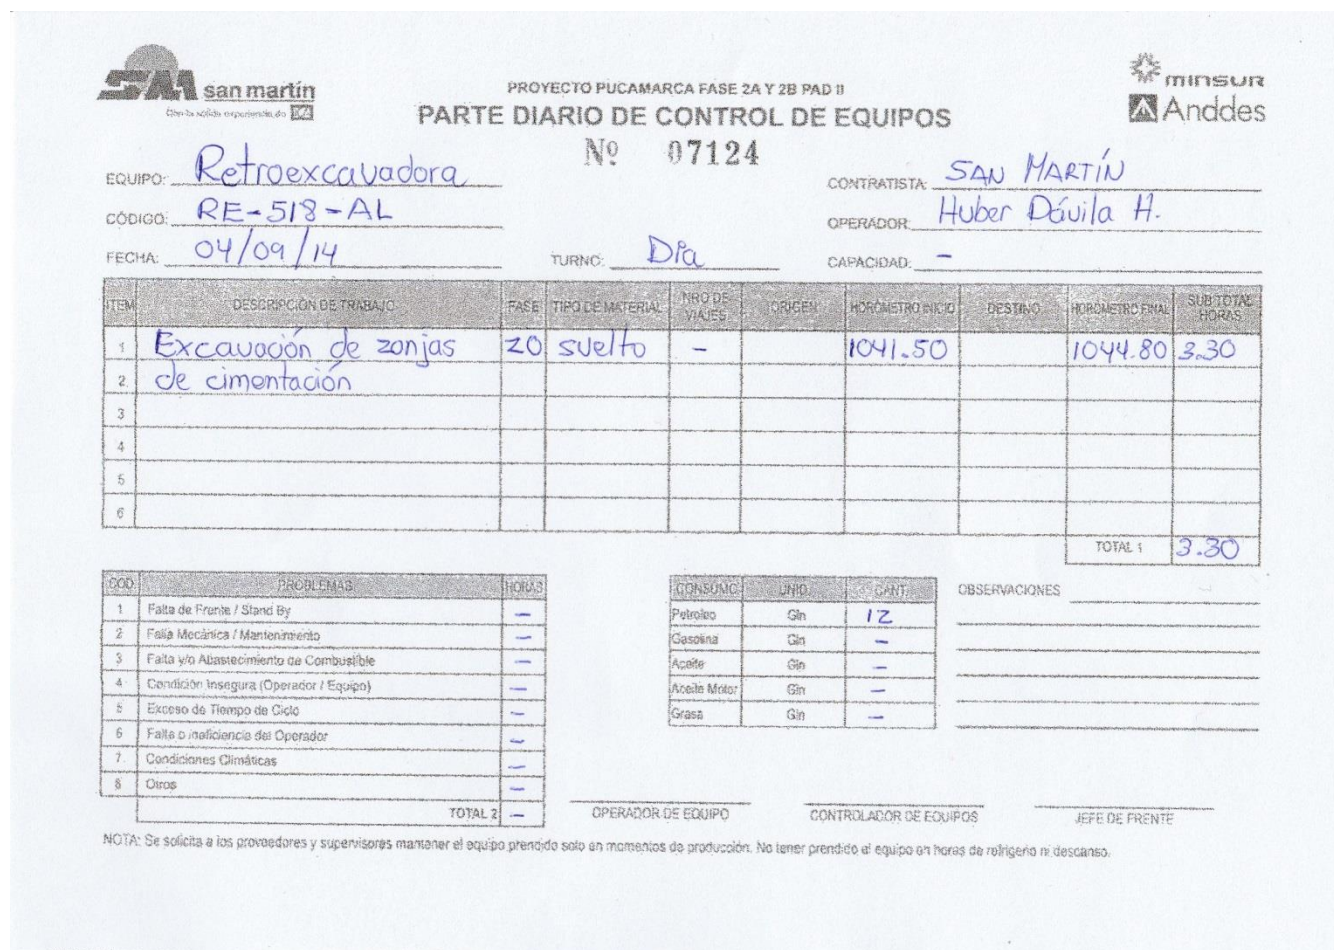 san martín
Con la solida experiencia de
PROYECTO PUCAMARCA FASE 2A Y 2B PAD II
minsur
Anddes
PARTE DIARIO DE CONTROL DE EQUIPOS
Nº 07124
EQUIPO: Retroexcavadora
CONTRATISTA: SAN MARTÍN
CÓDIGO: RE-518-AL
OPERADOR: Huber Dávila H.
FECHA: 04/09/14 TURNO: Día CAPACIDAD: -
ITEM DESCRIPCIÓN DE TRABAJO FASE TIPO DE MATERIAL NRO DE VIAJES ORIGEN HORÓMETRO INICIO DESTINO HORÓMETRO FINAL SUB TOTAL HORAS
1 Excavación de zonjas 20 suelto - 1041.50 1044.80 3.30
2 de cimentación
3
4
5
6
TOTAL 1 3.30
COD. PROBLEMAS HORAS
1 Falta de Frente / Stand By -
2 Falla Mecánica / Mantenimiento -
3 Falta y/o Abastecimiento de Combustible -
4 Condición Insegura (Operador / Equipo) -
5 Exceso de Tiempo de Ciclo -
6 Falta o ineficiencia del Operador -
7. Condiciones Climáticas -
8 Otros -
TOTAL 2 -
CONSUMO UNID. CANT.
Petroleo Gln 12
Gasolina Gln -
Aceite Gln -
Aceite Motor Gln -
Grasa Gln -
OBSERVACIONES
OPERADOR DE EQUIPO
CONTROLADOR DE EQUIPOS
JEFE DE FRENTE
NOTA: Se solicita a los proveedores y supervisores mantener el equipo prendido solo en momentos de producción. No tener prendido el equipo en horas de refrigerio ni descanso.